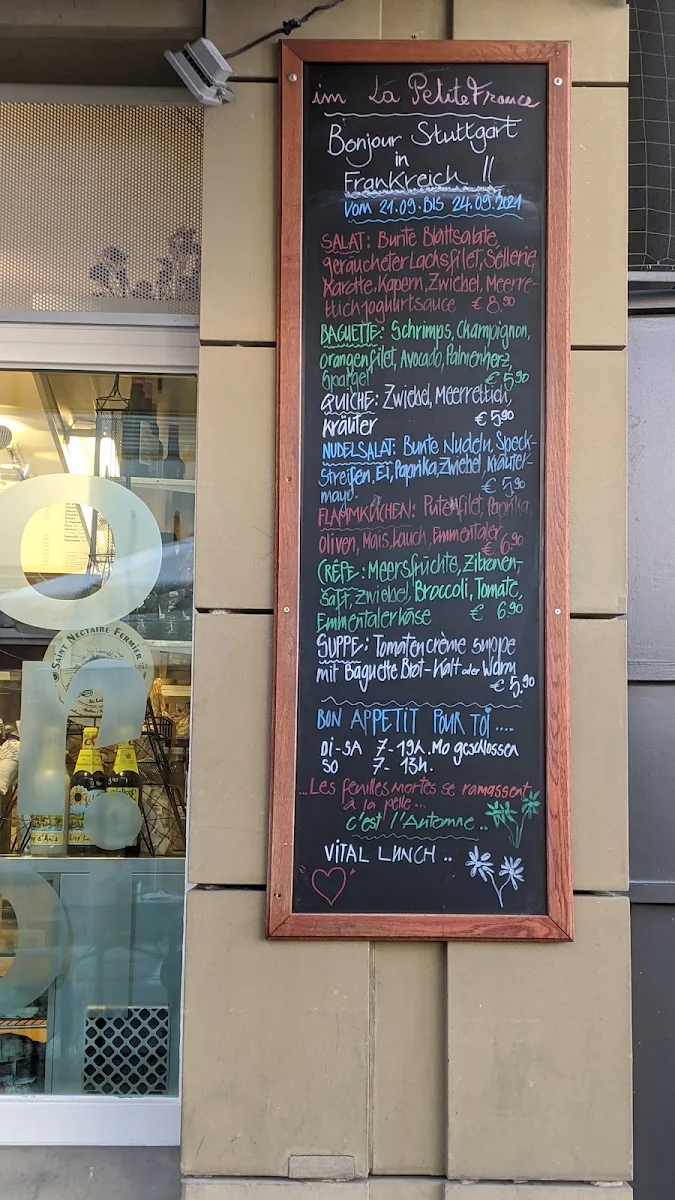 im La Petite France
Bonjour Stuttgart
in
Frankreich !!
Vom 21.09. BIS 24.09.2021
SALAT: Bunte Blattsalate,
geräucheter Lachsfilet, Sellerie,
Karotte, Kapern, Zwiebel, Meerre-
ttichjoghurtsauce € 8.90
BAGUETTE: Schrimps, Champignon,
orangenfilet, Avocado, Palmenherz,
Spargel € 5,90
QUICHE: Zwiebel, Meerrettich,
Kräuter € 5,90
NUDELSALAT: Bunte Nudeln, Speck-
Streifen, Ei, Paprika, Zwiebel, Kräuter-
mayo. € 5,90
FLAMMKUCHEN: Putenfilet, Paprika,
Oliven, Mais, Lauch, Emmentaler € 6,90
CRÊPE: Meersfrüchte, Zitronen-
Saft, Zwiebel, Broccoli, Tomate,
Emmentalerkäse € 6,90
SUPPE: Tomatencrème suppe
mit Baguette Brot - Kalt oder Warm
€ 5,90
BON APPETIT POUR TOI ....
DI-SA 7-19h. Mo geschlossen
SO 7- 13h.
...Les feuilles mortes se ramassent
à la pelle...
c'est l'Automne..
VITAL LUNCH ..
SAINT NECTAIRE FERMIER